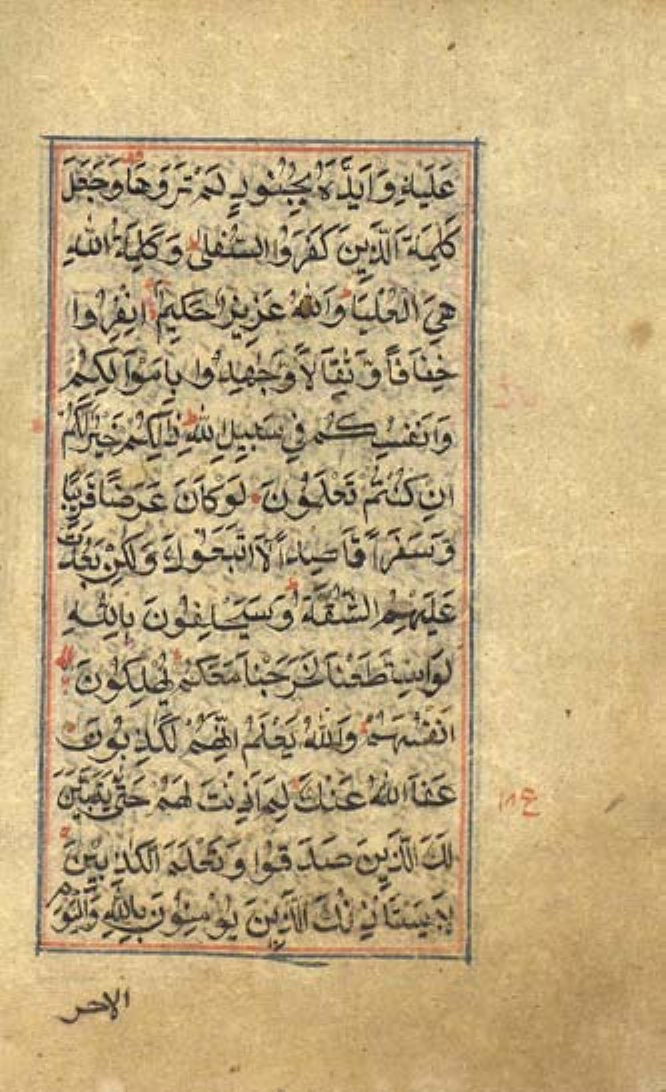 عَلَيْهِ وَاَيَّدَهُ بِجُنُودٍ لَمْ تَرَوْهَا وَجَعَلَ
كَلِمَةَ الَّذِينَ كَفَرُوا السُّفْلىٰ وَكَلِمَةُ اللهِ
هِيَ الْعُلْيَا وَاللهُ عَزِيزٌ حَكِيمٌ اِنْفِرُوا
خِفَافًا وَّثِقَالًا وَّجٰهِدُوا بِاَمْوَالِكُمْ
وَاَنْفُسِكُمْ فِي سَبِيلِ اللهِ ذٰلِكُمْ خَيْرٌ لَّكُمْ
اِنْ كُنْتُمْ تَعْلَمُونَ لَوْ كَانَ عَرَضًا قَرِيبًا
وَّسَفَرًا قَاصِدًا لَّاتَّبَعُوكَ وَلٰكِنْ بَعُدَتْ
عَلَيْهِمُ الشُّقَّةُ وَسَيَحْلِفُونَ بِاللهِ
لَوِ اسْتَطَعْنَا لَخَرَجْنَا مَعَكُمْ يُهْلِكُونَ
اَنْفُسَهُمْ وَاللهُ يَعْلَمُ اِنَّهُمْ لَكٰذِبُونَ
عَفَا اللهُ عَنْكَ لِمَ اَذِنْتَ لَهُمْ حَتّٰى يَتَبَيَّنَ
لَكَ الَّذِينَ صَدَقُوا وَتَعْلَمَ الْكٰذِبِينَ
لَا يَسْتَأْذِنُكَ الَّذِينَ يُؤْمِنُونَ بِاللهِ وَالْيَوْمِ
الاخر